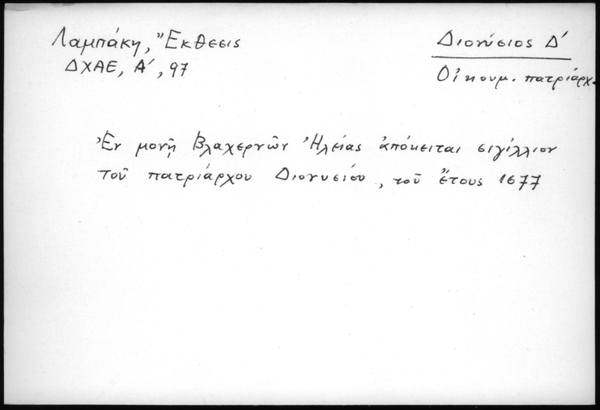 Λαμπάκη, Ἔκθεσις
ΔΧΑΕ, Α΄, 97
Διονύσιος Δ΄
Οἰκουμ. πατριάρχ.
Ἐν μονῇ Βλαχερνῶν Ἠλείας ἀπόκειται σιγίλλιον
τοῦ πατριάρχου Διονυσίου, τοῦ ἔτους 1677